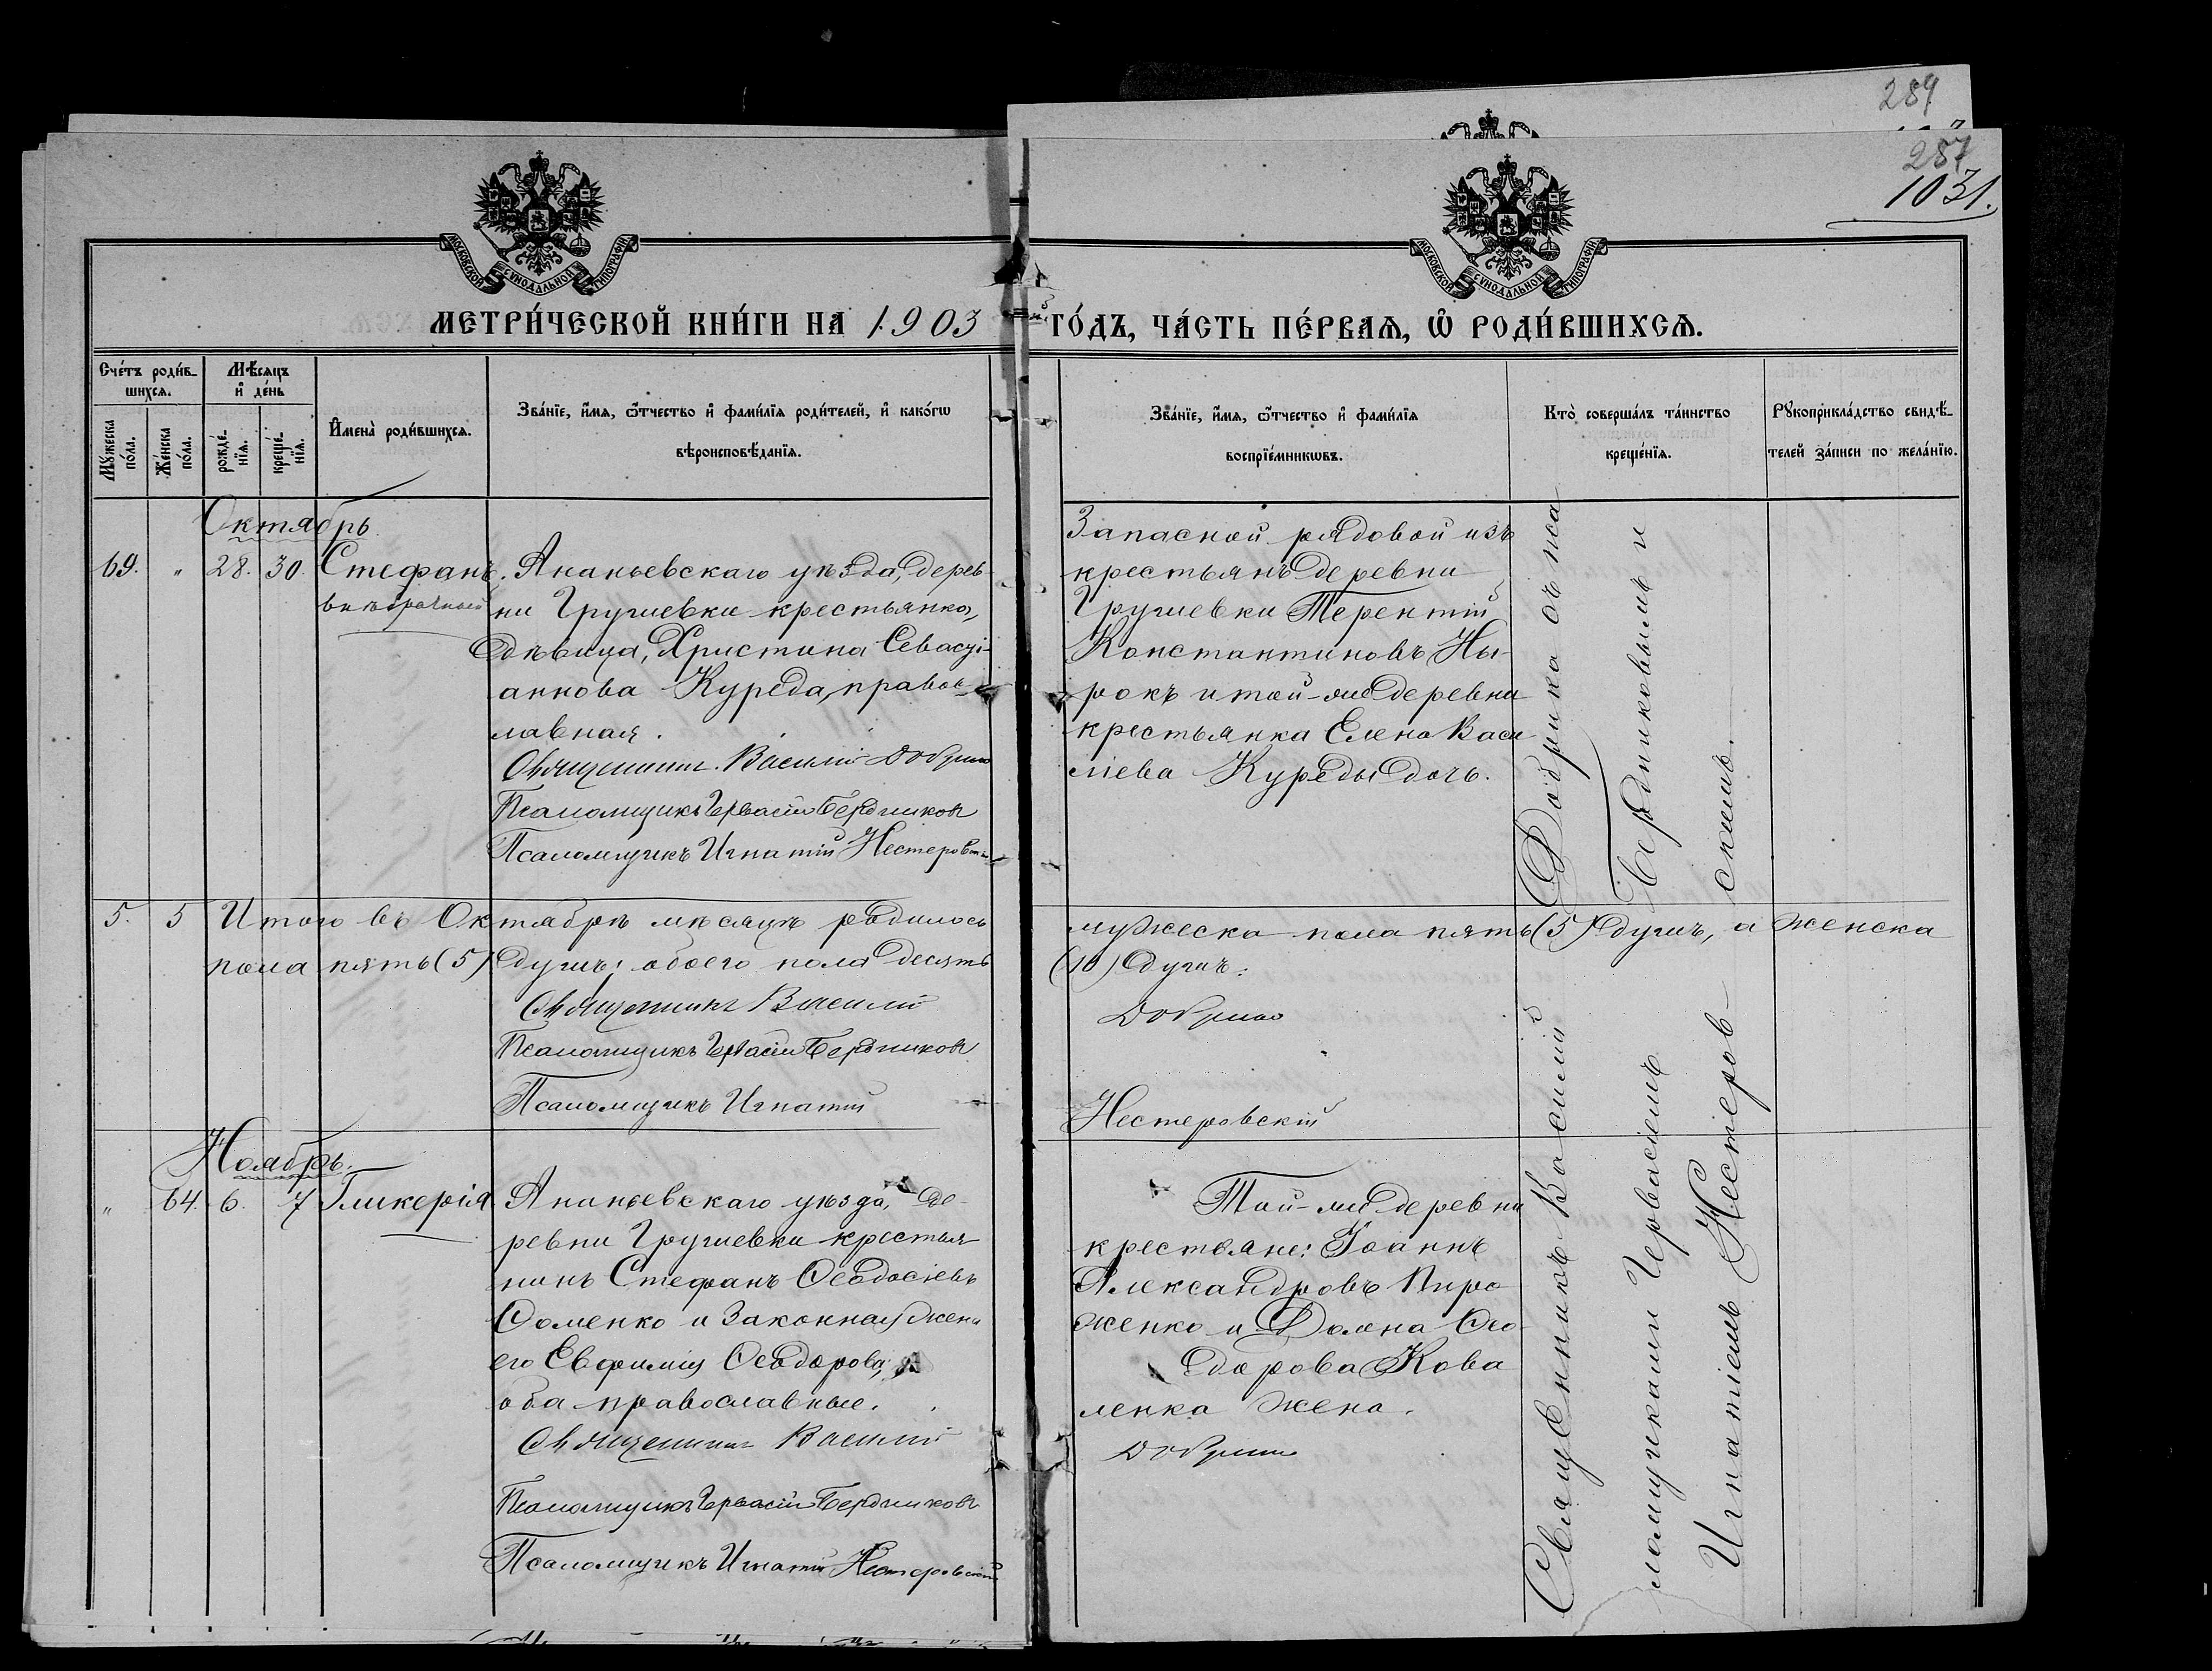 289
287
1031.
МОСКОВСКОЙ СѴНОДАЛЬНОЙ ТИПОГРАФІИ
МОСКОВСКОЙ СѴНОДАЛЬНОЙ ТИПОГРАФІИ
МЕТРИ́ЧЕСКОЙ КНИ́ГИ НА 1903 ГО́ДЪ, ЧА́СТЬ ПЕ́РВАЯ, Ѡ҆ РОДИ́ВШИХСЯ.
Сче́тъ роди́в-
шихся.
Мꙋ́жеска по́ла.
Же́нска по́ла.
Мѣ́сяцъ
и҆ де́нь
рожде́-
нїя.
креще́-
нїя.
И҆мена̀ роди́вшихся.
Зва́нїе, и҆́мя, ѻ҆́тчество и҆ фамі́лїя роди́телей, и҆ како́гѡ
вѣроисповѣ́данїя.
Зва́нїе, и҆́мя, ѻ҆́тчество и҆ фамі́лїя
воспрїе́мникѡвъ.
Кто̀ соверша́лъ та́инство
креще́нїя.
Рꙋкоприкла́дство свидѣ́-
телей за́писи по жела́нїю.
Октябрь
69. " 28. 30. Стефанъ
внѣбрачный
Ананьевскаго уѣзда, дерев-
ни Грушевки крестьянка,
Дѣвица, Христина Севасті-
анова Куреда, правос-
лавная.
Священникъ Василій Добрика
Псаломщикъ Гервасій Бердниковъ
Псаломщикъ Игнатій Нестеровскій
Запасной рядовой изъ
крестьянъ деревни
Грушевки Терентій
Константиновъ Ны-
рокъ и той-же деревни
крестьянка Елена Васи
ліева Куреды дочь.
5. 5 Итого въ Октябрѣ мѣсяцѣ родилось мужеска пола пять (5) душъ, а женска
пола пять (5) душъ; обоего пола десять (10) душъ:
Священникъ Василій Добрика
Псаломщикъ Гервасій Бердниковъ
Псаломщикъ Игнатій Нестеровскій
Ноябрь.
" 64. 6. 7 Гликерія.
Ананьевскаго уѣзда, де-
ревни Грушевки крестья-
нинъ Стефанъ Ѳеодосіевъ
Ѳоменко и законная жена
его Евфимія Ѳеодорова,
оба православные.
Священникъ Василій Добрика
Псаломщикъ Гервасій Бердниковъ
Псаломщикъ Игнатій Нестеровскій
Той-же деревни
крестьяне: Іоаннъ
Александровъ Пиро
женко и Домна Ѳео-
дорова Кова
ленка жена.
Священникъ Василій Добрика съ пса
ломщиками Гервасіемъ Бердниковымъ и
Игнатіемъ Нестеров-
скимъ.